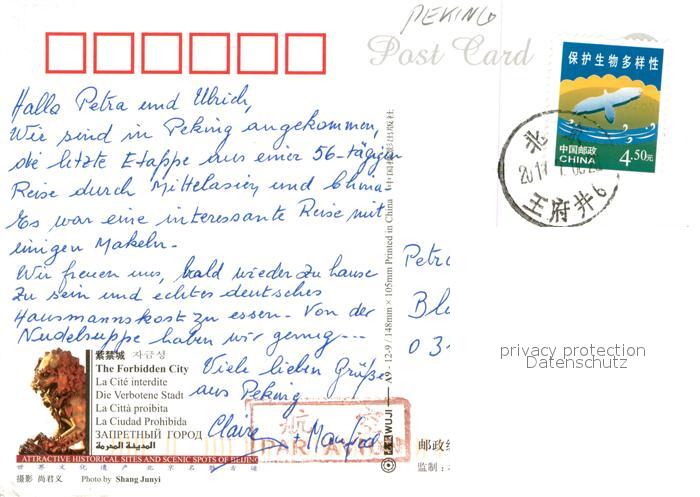 PEKING
Post Card
保护生物多样性
中国邮政
CHINA
4.50元
北京
王府井 6
Hallo Petra und Ulrich,
Wir sind in Peking angekommen,
die letzte Etappe aus einer 56-tägigen
Reise durch Mittelasien und China.
Es war eine interessante Reise mit
einigen Makeln.
Wir freuen uns, bald wieder zu hause
zu sein und echtes deutsches
Hausmannskost zu essen. Von der
Nudelsuppe haben wir genug---
Viele lieben Grüße
aus Peking
Claire + Manfred
Petra
Bl
0 3
privacy protection
Datenschutz
紫禁城 자금성
The Forbidden City
La Cité interdite
Die Verbotene Stadt
La Città proibita
La Ciudad Prohibida
ЗАПРЕТНЫЙ ГОРОД
المدينة المحرمة
ATTRACTIVE HISTORICAL SITES AND SCENIC SPOTS OF BEIJING
世界文化遗产 北京名胜古迹
摄影 尚君义 Photo by Shang Junyi
航空
PAR AVION
WUJI A9 - 12-9 / 148mm × 105mm Printed in China
邮政
监制: